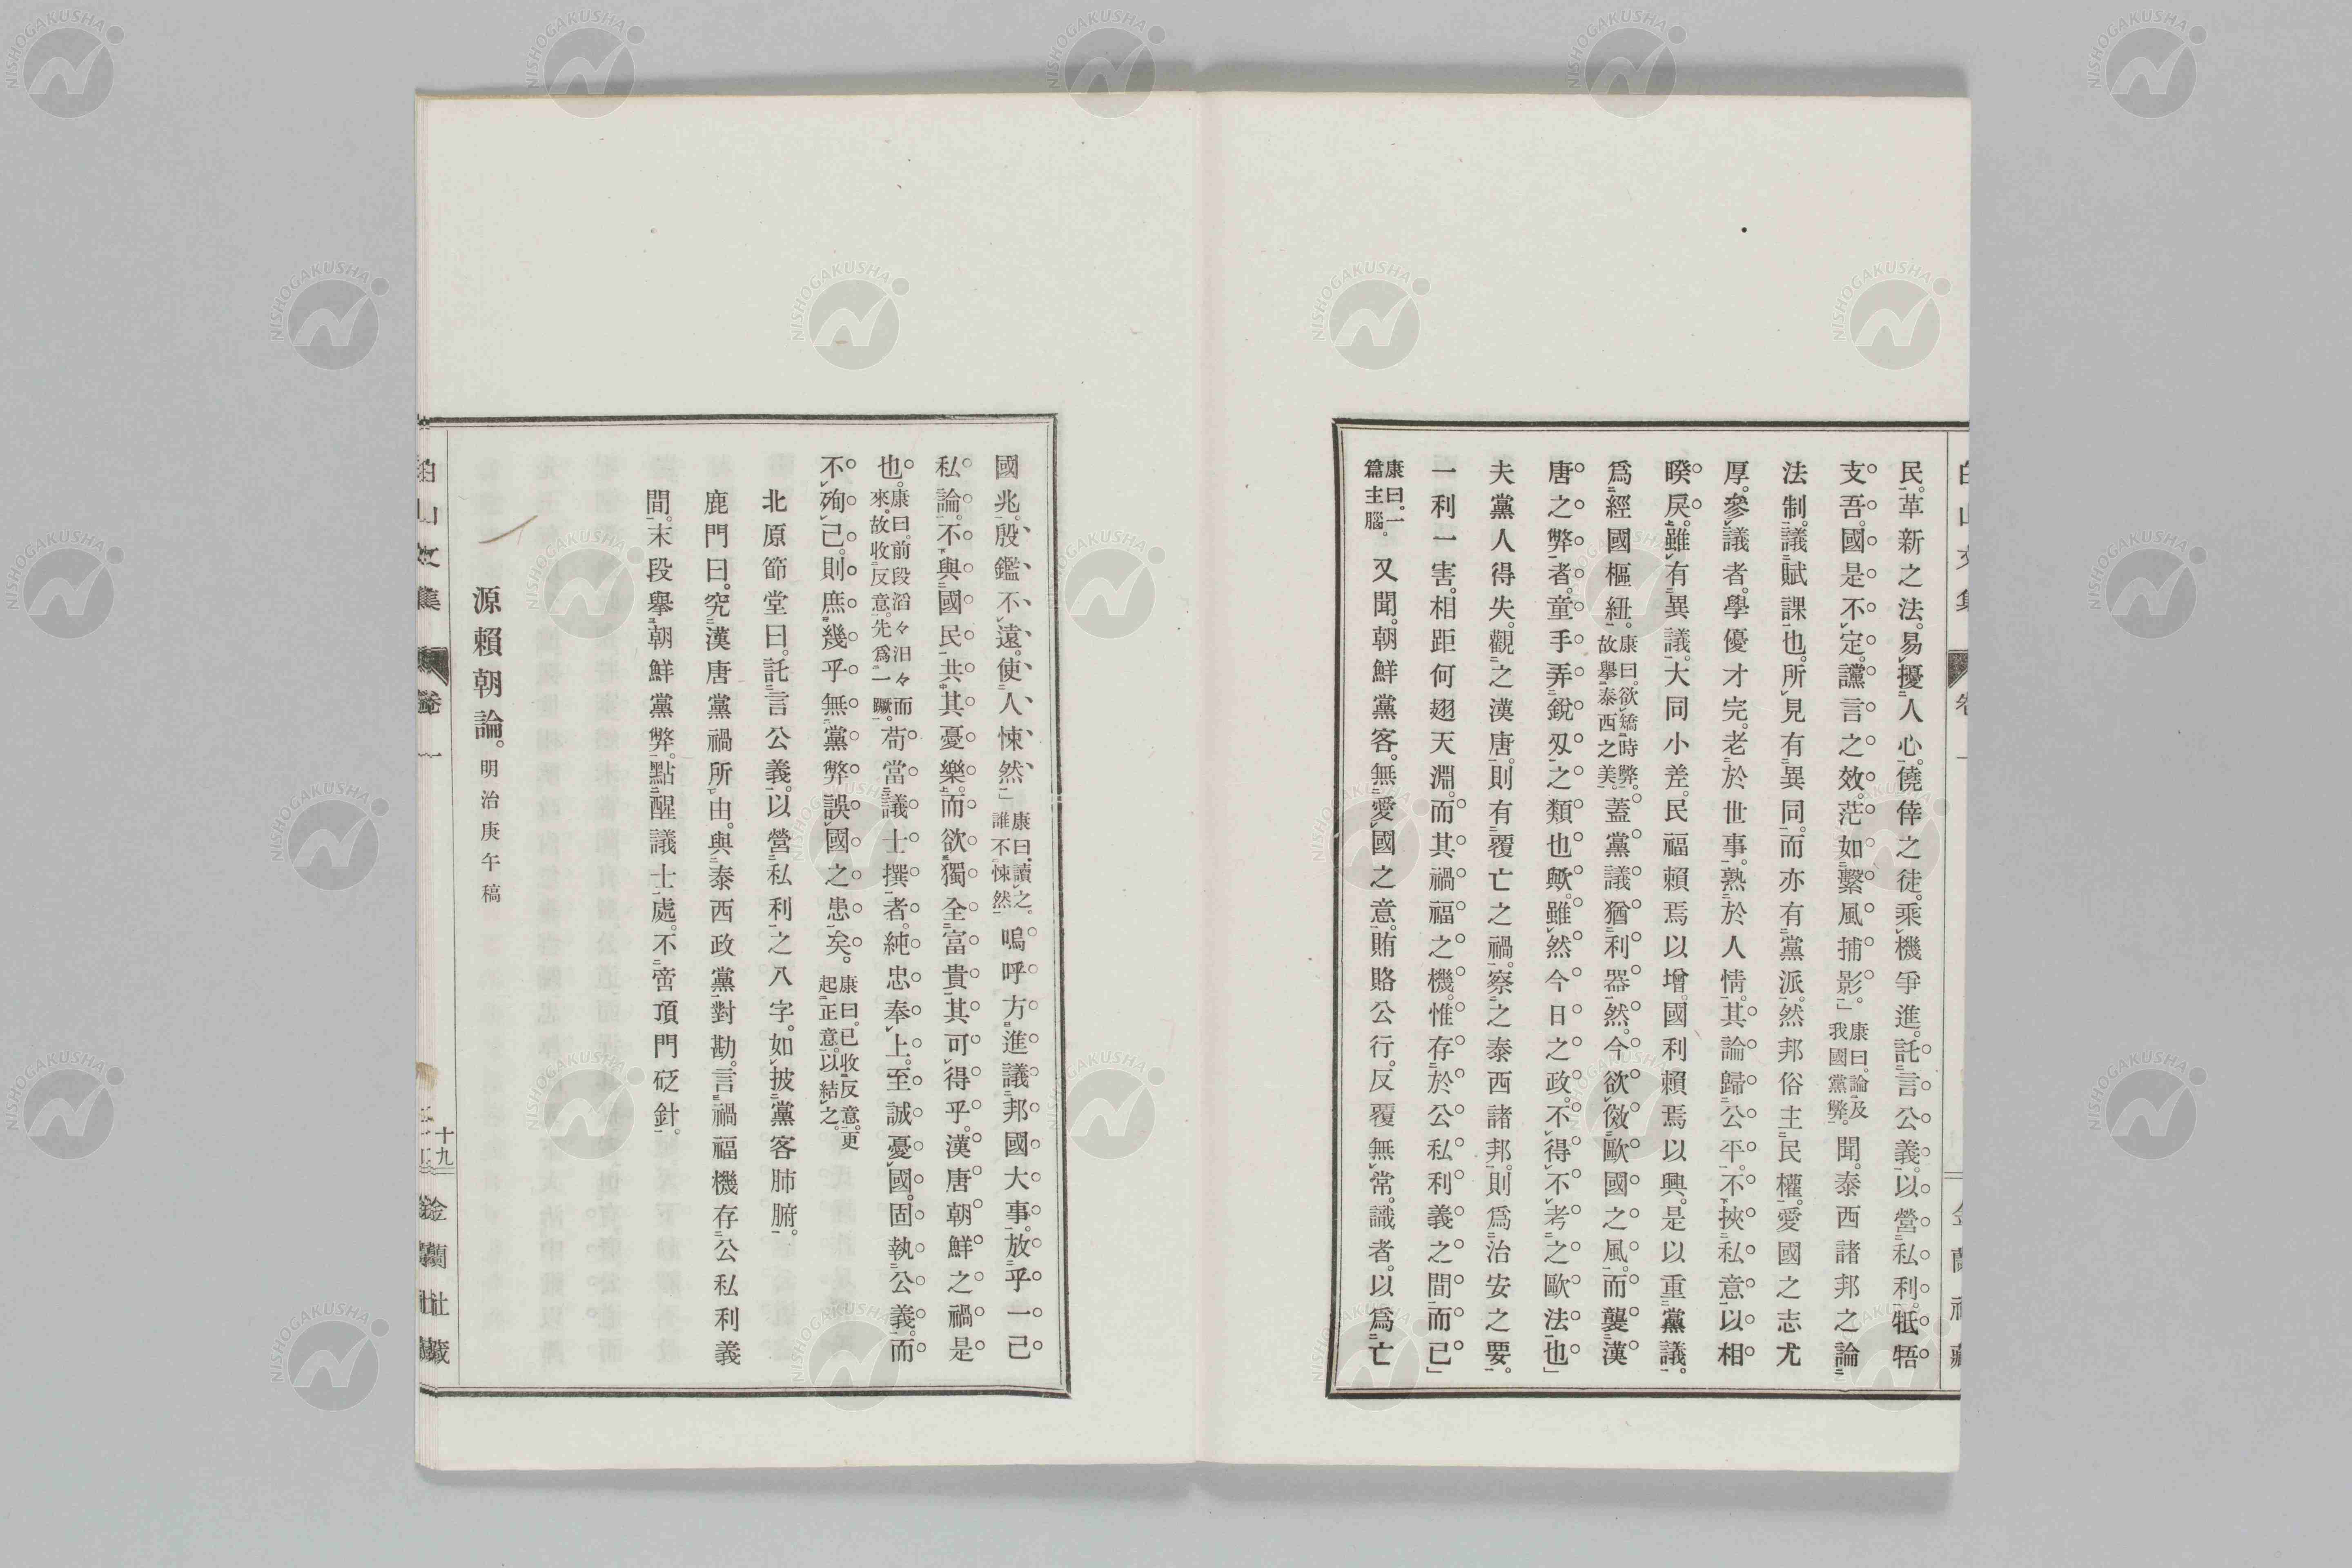 民。革新之法。易擾人心。僥倖之徒。乘機爭進。託言公義。以營私利。牴牾
支吾。國是不定。讜言之效。茫如繫風捕影。」康曰。論及我國黨弊。聞。泰西諸邦之論
法制。議賦課也。所見有異同。而亦有黨派。然邦俗主民權。愛國之志尤
厚。參議者。學優才完。老於世事。熟於人情。其論歸公平。不挾私意。以相
暌戾。雖有異議。大同小差。民福賴焉以增。國利賴焉以興。是以重黨議。
爲經國樞紐。康曰。欲矯時弊。故擧泰西之美。蓋黨議猶利器。然。今欲傚歐國之風。而襲漢
唐之弊者。童手弄銳刄之類也歟。雖然今日之政。不得不考之歐法也」
夫黨人得失。觀之漢唐。則有覆亡之禍。察之泰西諸邦。則爲治安之要。
一利一害。相距何翅天淵。而其禍福之機。惟存於公私利義之間而已」
康曰。一篇主腦。又聞。朝鮮黨客。無愛國之意。賄賂公行。反覆無常。識者。以爲亡
國兆。殷鑑不遠。使人悚然」康曰。讀之。誰不悚然 嗚呼方進議邦國大事。放乎一己
私論。不與國民共其憂樂。而欲獨全富貴。其可得乎。漢唐朝鮮之禍是
也。康曰。前段滔々汨々而來。故收反意。先爲一蹶。苟當議士撰者。純忠奉上。至誠憂國。固執公義。而
不殉己。則庶幾乎無黨弊誤國之患矣。康曰。已收反意。更起正意。以結之。
北原節堂曰。託言公義。以營私利之八字。如披黨客肺腑。
鹿門曰。究漢唐黨禍所由。與泰西政黨對勘。言禍福機存公私利義
間。末段擧朝鮮黨弊。點醒議士處。不啻頂門砭針。
源賴朝論。明治庚午稿
白山文集 卷一 十九 金蘭社藏
NISHOGAKUSHA